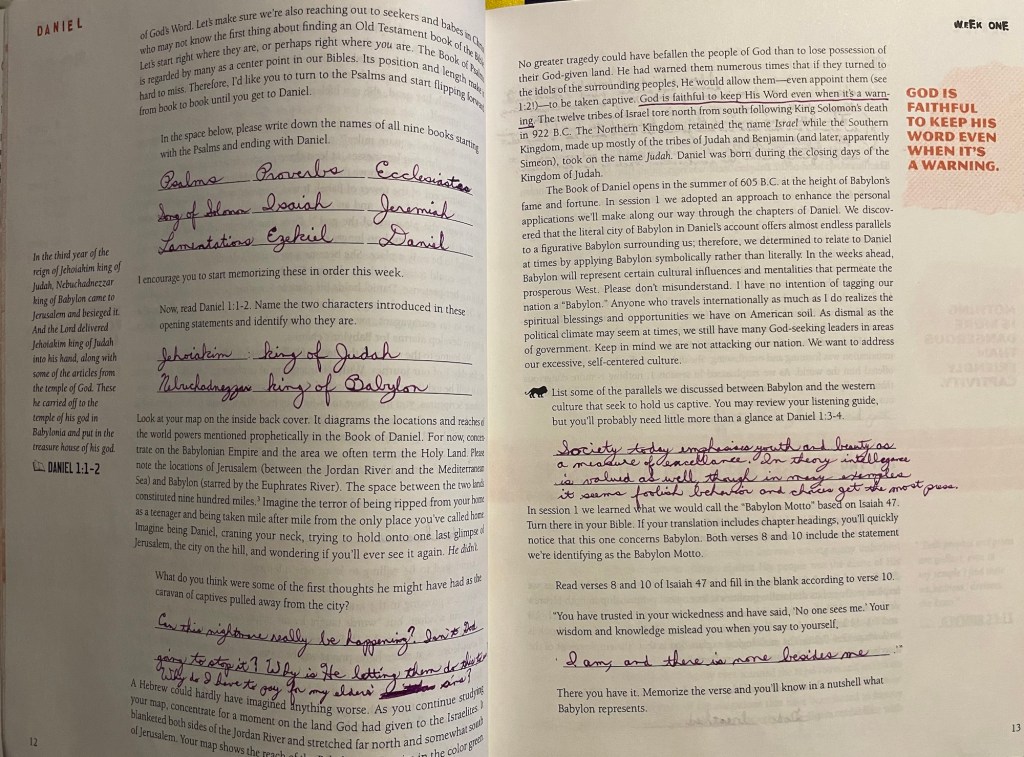 DANIEL
of God's Word. Let's make sure we're also reaching out to seekers and babes in
who may not know the first thing about finding an Old Testament book of the
Let's start right where they are, or perhaps right where you are. The Book of
is regarded by many as a center point in our Bibles. Its position and length make
hard to miss. Therefore, I'd like you to turn to the Psalms and start flipping forward
from book to book until you get to Daniel.
In the space below, please write down the names of all nine books starting
with the Psalms and ending with Daniel.
Psalms Proverbs Ecclesiastes
Song of Solomon Isaiah Jeremiah
Lamentations Ezekiel Daniel
I encourage you to start memorizing these in order this week.
Now, read Daniel 1:1-2. Name the two characters introduced in these
opening statements and identify who they are.
Jehoiakim : king of Judah
Nebuchadnezzar king of Babylon
In the third year of the
reign of Jehoiakim king of
Judah, Nebuchadnezzar
king of Babylon came to
Jerusalem and besieged it.
And the Lord delivered
Jehoiakim king of Judah
into his hand, along with
some of the articles from
the temple of God. These
he carried off to the
temple of his god in
Babylonia and put in the
treasure house of his god.
DANIEL 1:1-2
Look at your map on the inside back cover. It diagrams the locations and reaches of
the world powers mentioned prophetically in the Book of Daniel. For now, concen-
trate on the Babylonian Empire and the area we often term the Holy Land. Please
note the locations of Jerusalem (between the Jordan River and the Mediterranean
Sea) and Babylon (starred by the Euphrates River). The space between the two lands
constituted nine hundred miles.³ Imagine the terror of being ripped from your home
as a teenager and being taken mile after mile from the only place you've called home.
Imagine being Daniel, craning your neck, trying to hold onto one last glimpse of
Jerusalem, the city on the hill, and wondering if you'll ever see it again. He didn't.
What do you think were some of the first thoughts he might have had as the
caravan of captives pulled away from the city?
Can this nightmare really be happening? Isn't God
going to stop it? Why is He letting them do this to
Why do I have to pay for my elders' sins?
A Hebrew could hardly have imagined anything worse. As you continue studying
your map, concentrate for a moment on the land God had given to the Israelites. It
blanketed both sides of the Jordan River and stretched far north and somewhat south
of Jerusalem. Your map shows the reach of the in the color green
12
WEEK ONE
No greater tragedy could have befallen the people of God than to lose possession of
their God-given land. He had warned them numerous times that if they turned to
the idols of the surrounding peoples, He would allow them—even appoint them (see
1:21)—to be taken captive. God is faithful to keep His Word even when it's a warn-
ing. The twelve tribes of Israel tore north from south following King Solomon's death
in 922 B.C. The Northern Kingdom retained the name Israel while the Southern
Kingdom, made up mostly of the tribes of Judah and Benjamin (and later, apparently
Simeon), took on the name Judah. Daniel was born during the closing days of the
Kingdom of Judah.
The Book of Daniel opens in the summer of 605 B.C. at the height of Babylon's
fame and fortune. In session 1 we adopted an approach to enhance the personal
applications we'll make along our way through the chapters of Daniel. We discov-
ered that the literal city of Babylon in Daniel's account offers almost endless parallels
to a figurative Babylon surrounding us; therefore, we determined to relate to Daniel
at times by applying Babylon symbolically rather than literally. In the weeks ahead,
Babylon will represent certain cultural influences and mentalities that permeate the
prosperous West. Please don't misunderstand. I have no intention of tagging our
nation a "Babylon." Anyone who travels internationally as much as I do realizes the
spiritual blessings and opportunities we have on American soil. As dismal as the
political climate may seem at times, we still have many God-seeking leaders in areas
of government. Keep in mind we are not attacking our nation. We want to address
our excessive, self-centered culture.
GOD IS
FAITHFUL
TO KEEP HIS
WORD EVEN
WHEN IT'S
A WARNING.
List some of the parallels we discussed between Babylon and the western
culture that seek to hold us captive. You may review your listening guide,
but you'll probably need little more than a glance at Daniel 1:3-4.
Society today emphasises youth and beauty as
a measure of excellance. In theory intelligence
is valued as well, though in many examples
it seems foolish behavior and choices get the most press.
In session 1 we learned what we would call the "Babylon Motto" based on Isaiah 47.
Turn there in your Bible. If your translation includes chapter headings, you'll quickly
notice that this one concerns Babylon. Both verses 8 and 10 include the statement
we're identifying as the Babylon Motto.
Read verses 8 and 10 of Isaiah 47 and fill in the blank according to verse 10.
"You have trusted in your wickedness and have said, 'No one sees me.' Your
wisdom and knowledge mislead you when you say to yourself,
'I am, and there is none besides me.'"
There you have it. Memorize the verse and you'll know in a nutshell what
Babylon represents.
13